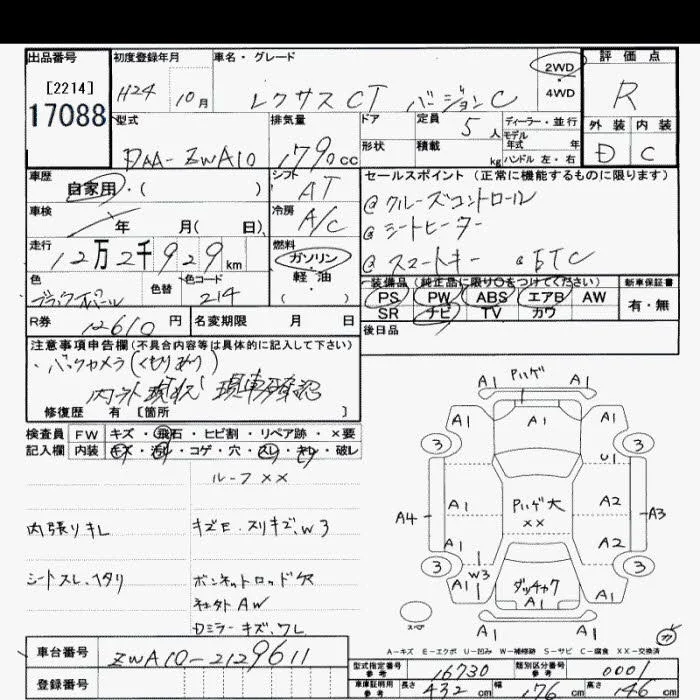 出品番号
[2214]
17088
初度登録年月
H24 10月
車名・グレード
レクサス CT バージョンC
2WD
・
4WD
評価点
R
外装 内装
D C
型式
DAA-ZWA10
排気量
1790cc
ドア
形状
定員 5人
積載 kg
ディーラー・並行
モデル
年式 年
ハンドル 左・右
車歴
自家用・( )
シフト
AT
セールスポイント (正常に機能するものに限ります)
@ クルーズコントロール
@ シートヒーター
@ スマートキー @ ETC
車検
年 月( 日)
冷房
A/C
走行
12万2千929km
燃料
ガソリン
・
軽・油
( )
色
ブラックオパール
色替
色コード
214
装備品 (純正品に限り○をつけてください)
PS PW ABS エアB AW
SR ナビ TV カワ
新車保証書
有・無
後日品
R券 12610円
名変期限 月 日
注意事項申告欄(不具合内容等は具体的に記入して下さい)
・バックカメラ(くもりあり)
内外現状 現車確認
修復歴 有 [箇所 ]
検査員 FW キズ・飛石・ヒビ割・リペア跡・×要
記入欄 内装 キズ・汚れ・コゲ・穴・スレ・キレ・破レ
ルーフ××
内張りキレ
キズE.スリキズ.W3
シートスレ.ヘタリ
ボンネットロッド欠
社外AW
Dミラーキズ.ワレ
A1 Pハゲ A1
A1 A1 A1
3 3
U1
A1 Pハゲ大 A2
××
A4 A3
A1 A2
3 3
W3
A1 ダッチャク A1
A1
スペア
A-キズ E-エクボ U-凹み W-補修跡 S-サビ C-腐食 XX-交換済
車台番号
ZWA10-2129611
登録番号
型式指定番号
参考
16730
類別区分番号
参考
0001
車庫証明用
参考
長さ 432cm 幅 176cm 高さ 146cm